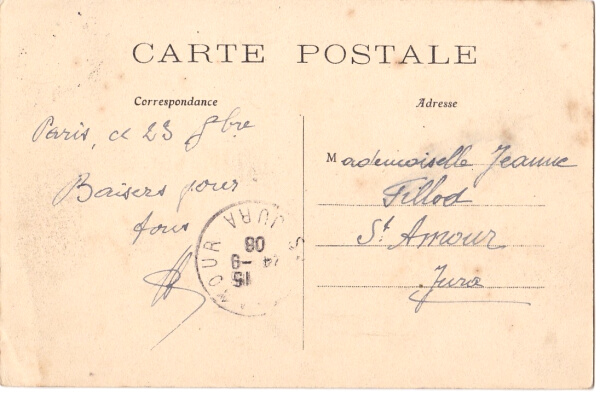 CARTE POSTALE
Correspondance
Adresse
Paris, ce 23 9bre
Baisers pour
tous
Mademoiselle Jeanne
Fillod
St Amour
Jura
MOUR JURA
15
24-9
08